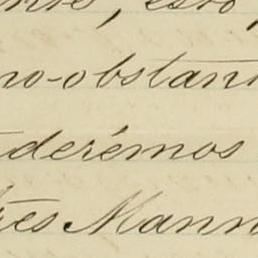 esto
no-obstan
derémos
res Mann